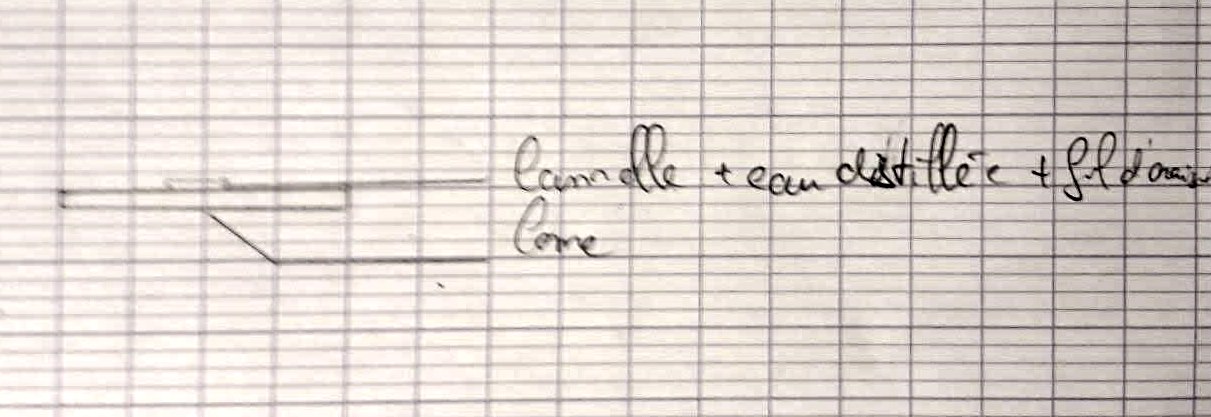 lamelle + eau distillée + fil d'araignée
lame